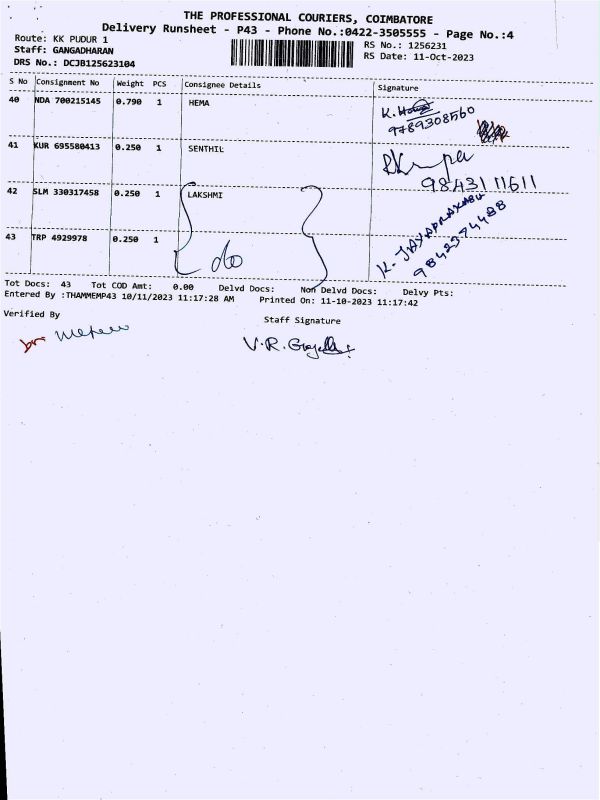 THE PROFESSIONAL COURIERS, COIMBATORE
Delivery Runsheet - P43 - Phone No.:0422-3505555 - Page No.:4
Route: KK PUDUR 1 RS No.: 1256231
Staff: GANGADHARAN RS Date: 11-Oct-2023
DRS No.: DCJB125623104
S No Consignment No Weight PCS Consignee Details Signature
40 NDA 700215145 0.790 1 HEMA K.
9789308560
41 KUR 695580413 0.250 1 SENTHIL
9843111611
42 SLM 330317458 0.250 1 LAKSHMI K. JAYAPRAKASH
9842374488
43 TRP 4929978 0.250 1 do
Tot Docs: 43 Tot COD Amt: 0.00 Delvd Docs: Non Delvd Docs: Delvy Pts:
Entered By :THAMMEMP43 10/11/2023 11:17:28 AM Printed On: 11-10-2023 11:17:42
Verified By Staff Signature
V.R.